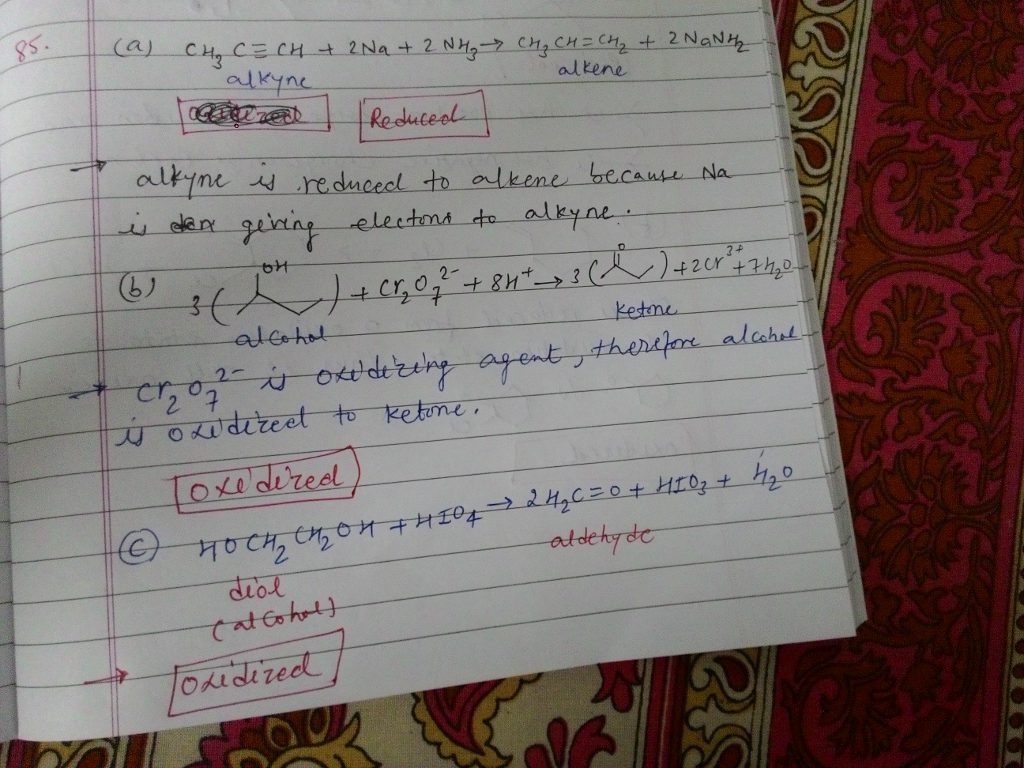 85. (a) CH₃C≡CH + 2Na + 2NH₃ → CH₃CH=CH₂ + 2NaNH₂
alkyne alkene
Reduced
→ alkyne is reduced to alkene because Na
is geving electons to alkyne.
(b) 3( OH ) + Cr₂O₇²⁻ + 8H⁺ → 3( O ) + 2Cr³⁺ + 7H₂O
alcohol ketone
→ Cr₂O₇²⁻ is oxidizing agent, therefore alcohol
is oxidized to ketone.
Oxidized
(C) HOCH₂CH₂OH + HIO₄ → 2H₂C=O + HIO₃ + H₂O
diol aldehyde
(alcohol)
→ Oxidized